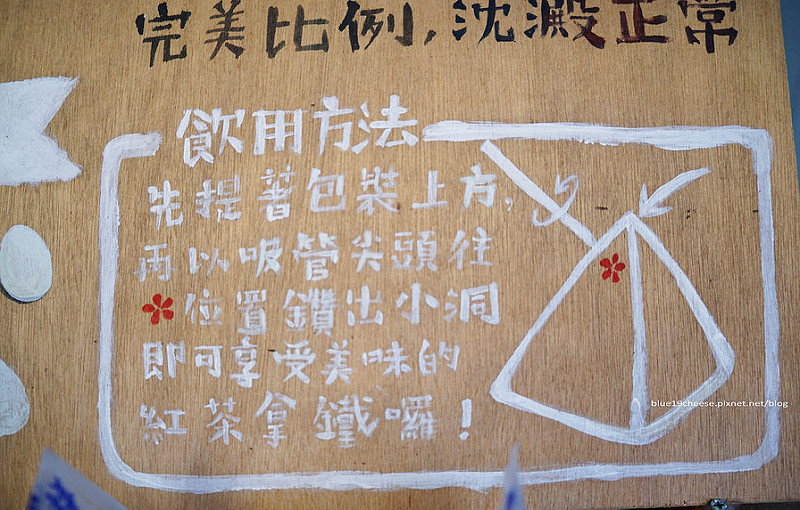 完美比例,沈澱正常
飲用方法
先提著包裝上方,
再以吸管尖頭往
位置鑽出小洞
即可享受美味的
紅茶拿鐵囉!
blue19cheese.pixnet.net/blog